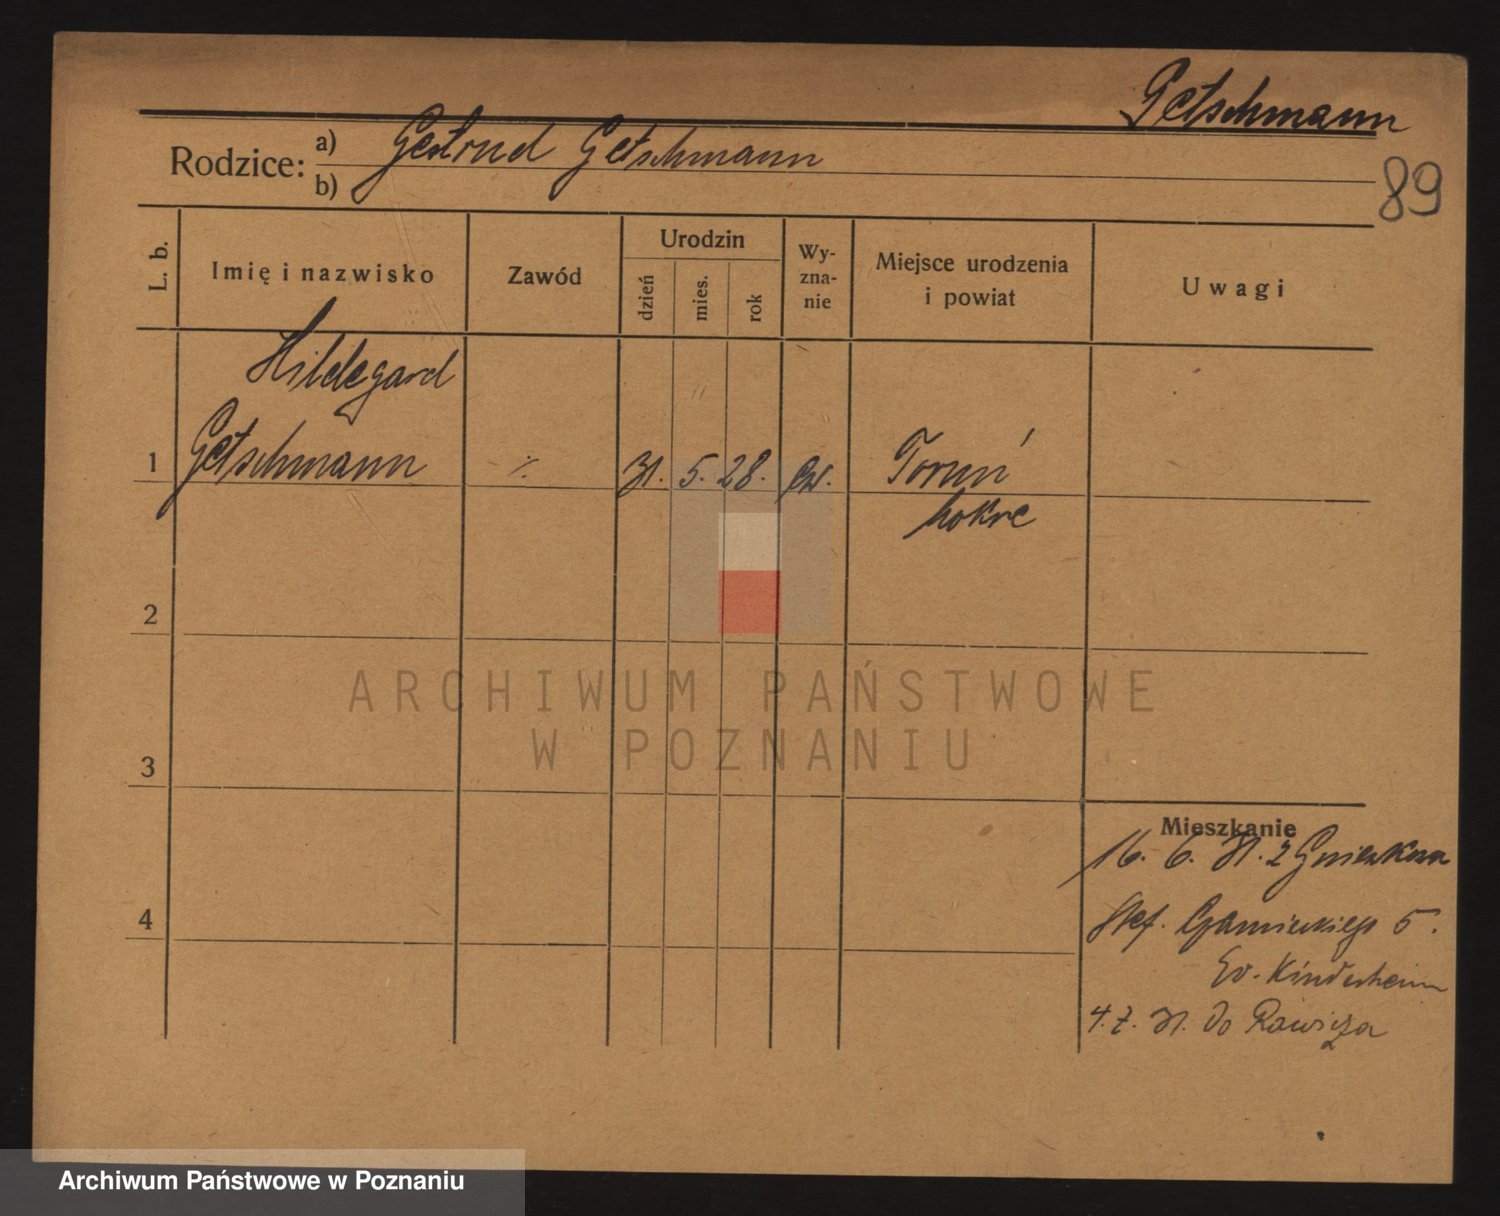 Getschmann
89
Rodzice: a) Gertrud Getschmann
b)
L. b. Imię i nazwisko Zawód Urodzin dzień mies. rok Wyznanie Miejsce urodzenia i powiat Uwagi
Hildegard
1 Getschmann ./. 31. 5. 28. ew. Toruń
Mokre
2
3
4
Mieszkanie
16. 6. 31. z Gniezkowa
Stef. Czarnieckiego 5.
Ev. Kinderheim
4. 7. 31. do Rawicza
ARCHIWUM PAŃSTWOWE
W POZNANIU
Archiwum Państwowe w Poznaniu